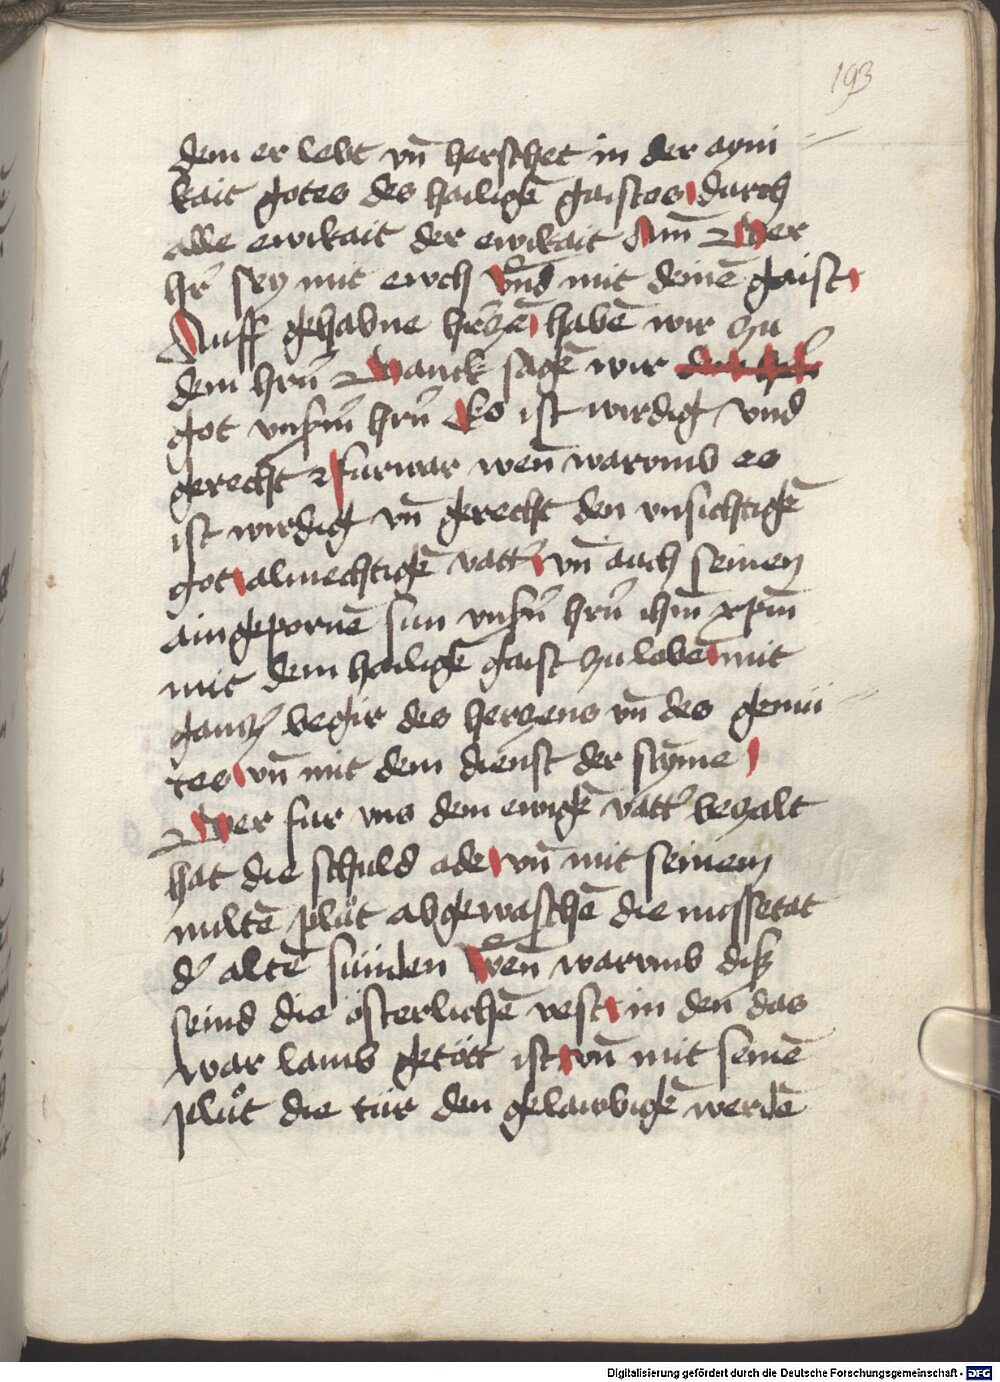 193
dem er lebt vn̄ herschet in der ayni
kait gotes des hailigē gaistes durch
alle ewikait der ewikait Am̄ Der
hr̄ sey mit ewch Vnd mit deinē gaist
Auff gehabne hr̄czē habē wir zu
dem hrn̄ Danck sagē wir
got vnserm̄ hrn̄ Es ist wirdig vnd
gerecht Furwar wen̄ warvmb es
ist wirdig vn̄ gerecht den vnsichtigē
got almechtigē vatt̄ vn̄ auch seinen
aingepornē sun vnsern̄ hrn̄ ihm̄ xpm̄
mit dem hailigē gaist zu lobē mit
gancz begir des herczens vn̄ des gemü
tes vn̄ mit dem dienst der stȳme
Der fur vns dem ewigē vatt̄ beczalt
hat die schuld ade vn̄ mit seinem
miltē plůt abgewaschē die missetat
d̄ altē sünden Wen̄ warvmb diß
seind die österlichē vest in den̄ das
war lamb getött ist vn̄ mit seinē
plůt die tür den gelawbigē werdē
Digitalisierung gefördert durch die Deutsche Forschungsgemeinschaft - DFG